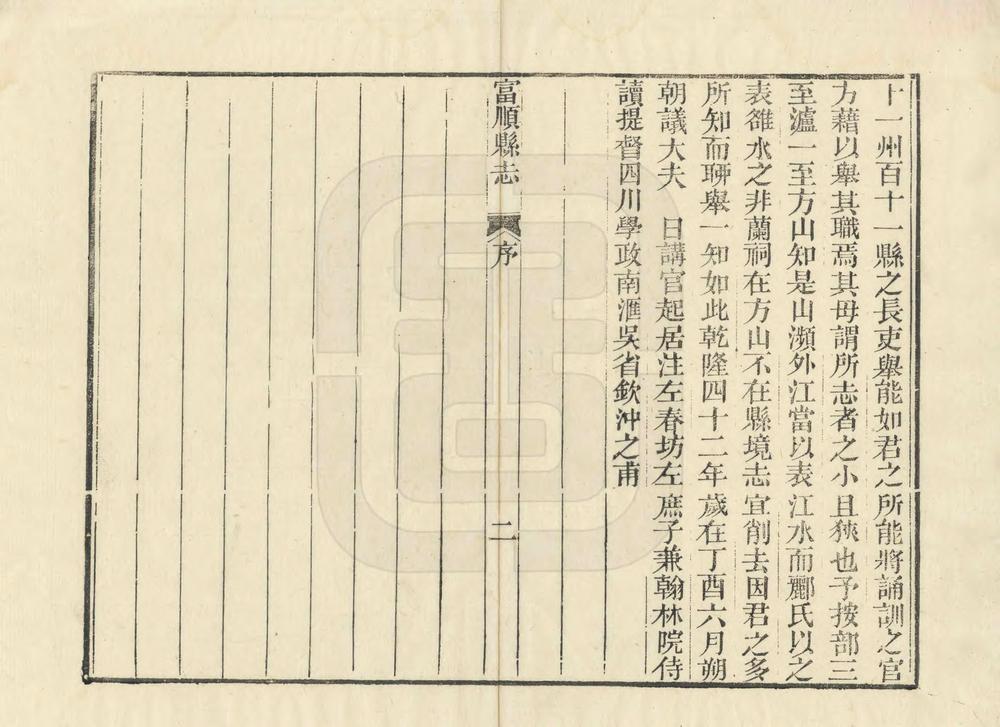 十一州百十一縣之長吏舉能如君之所能將誦訓之官
方藉以舉其職焉其毋謂所志者之小且狹也予按部三
至瀘一至方山知是山瀕外江當以表江水而酈氏以之
表雒水之非蘭祠在方山不在縣境志宜削去因君之多
所知而聊舉一知如此乾隆四十二年歲在丁酉六月朔
朝議大夫　日講官起居注左春坊左庶子兼翰林院侍
讀提督四川學政南滙吳省欽沖之甫
富順縣志　序　二